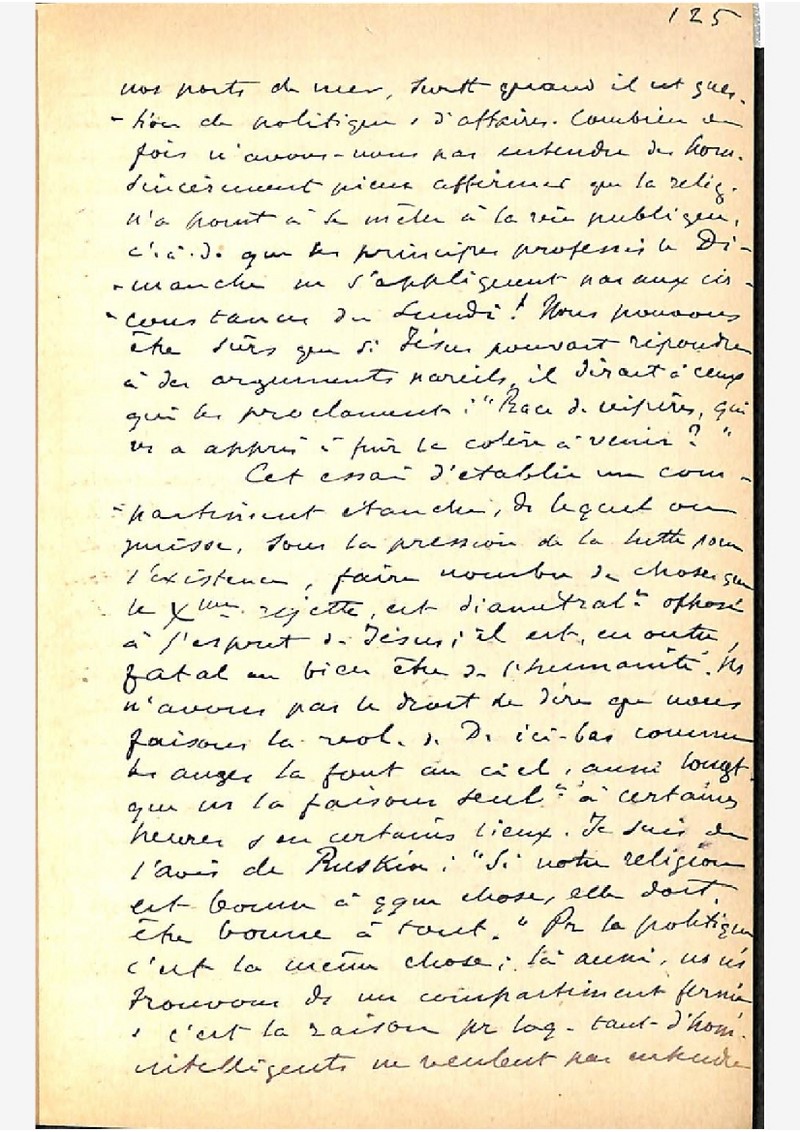 125
nos ports de mer, surtt quand il est ques-
-tion de politique & d'affaires. Combien de
fois n'avons-nous pas entendu des hom.
sincèrement pieux affirmer que la relig.
n'a point à se mêler à la vie publique,
c.à.d. que les principes professés le Di-
-manche ne s'appliquent pas aux cir-
-constances du Lundi! Nous pouvons
être sûrs que si Jésus pouvait répondre
à des arguments pareils, il dirait à ceux
qui les proclament : "Race de vipères, qui
vs a appris à fuir la colère à venir?"
Cet essai d'établir un com-
-partiment étanche, ds lequel on
puisse, sous la pression de la lutte pour
l'existence, faire nombre de choses que
le Xme rejette, est diamétralt opposé
à l'esprit de Jésus; il est, en outre,
fatal au bien être de l'humanité. Ns
n'avons pas le droit de dire que nous
faisons la vol. de D. ici-bas comme
les anges la font au ciel, aussi longt.
que ns la faisons seult à certaines
heures & en certains lieux. Je suis de
l'avis de Ruskin : "Si notre religion
est bonne à qque chose, elle doit
être bonne à tout." Pr la politique
c'est la même chose; là aussi, ns ns
trouvons ds un compartiment fermé
& c'est la raison pr laq. tant d'hom.
intelligents ne veulent pas entendre